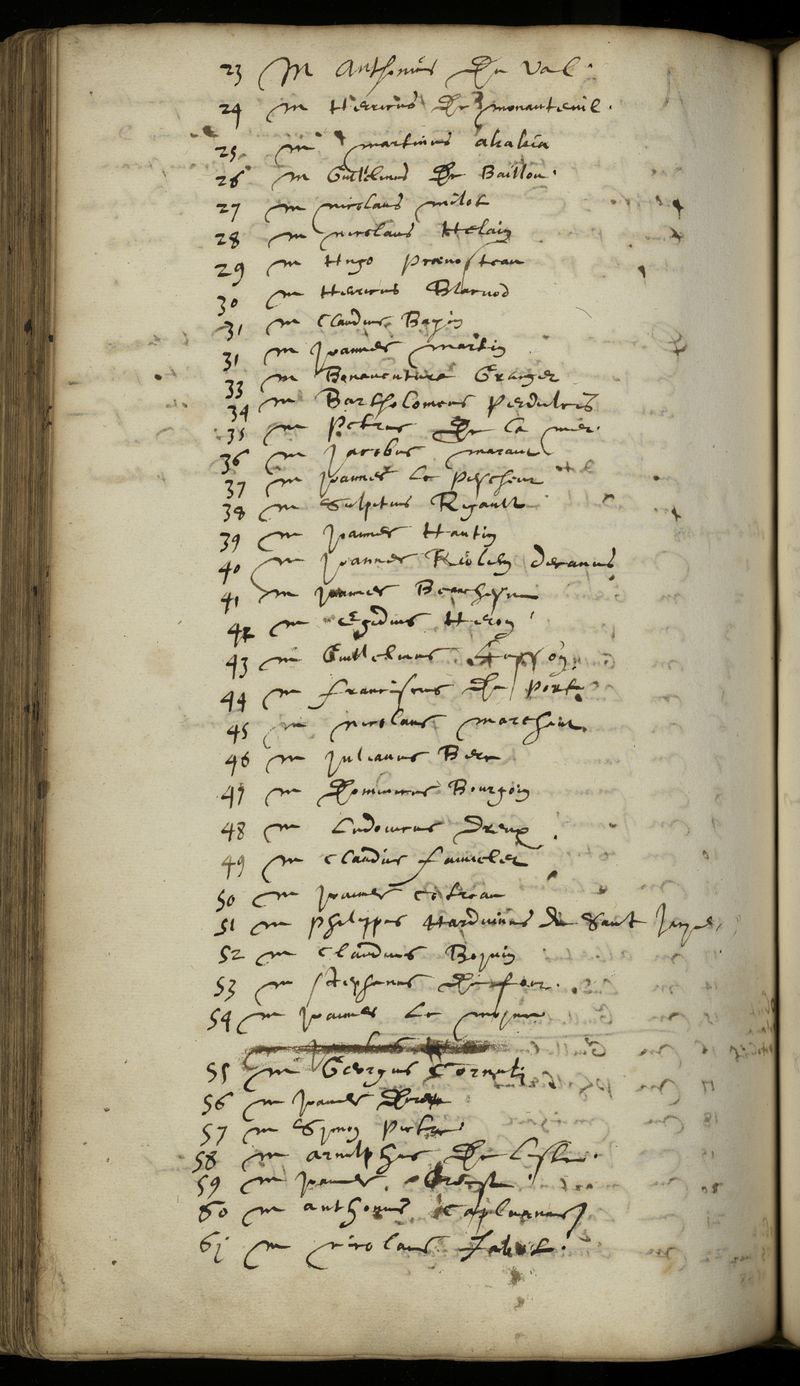 23 M Anthonius Du Val.
24 m Henricus De monanteuil.
25 m martinus akakia
26 m Guillelmus De Baillou.
27 m nicolaus milot
28 m nicolaus Helain
29 m Hugo Prævosteau
30 m Henricus Blacuod
31 m Claudius Bazin
31 m Joannes martin
33 m Bonaventura Granger
34 m Bartholomeus Perdulcis
35 m Petrus De la mer.
36 m Jacobus marant
37 m Joannes Le Pescheur
38 m Sulpitius Rigault
39 m Joannes Hautin
40 m Joannes Riolan Decanus
41 m Joannes Beauchesne
42 m Egidius Heron
43 m Guillelmus Lusson.
44 m Franciscus Du Port
45 m nicolaus marchant
46 m Julianus Bere
47 m Dominicus Bourgoin
48 m Ludovicus Dreux
49 m Claudius Faucelet
50 m Joannes Cotreau
51 m Philippus Harduinus De Saint Jaques
52 m Claudius Boyvin
53 m Stephanus De four.
54 m Joannes Le moyne
55 m Georgius Cornuti
56 m Joannes
57 m Symon Pietre
58 m arnulphus De Lisle.
59 m Joannes
60 m anthonius
61 m nicolaus Jabot.